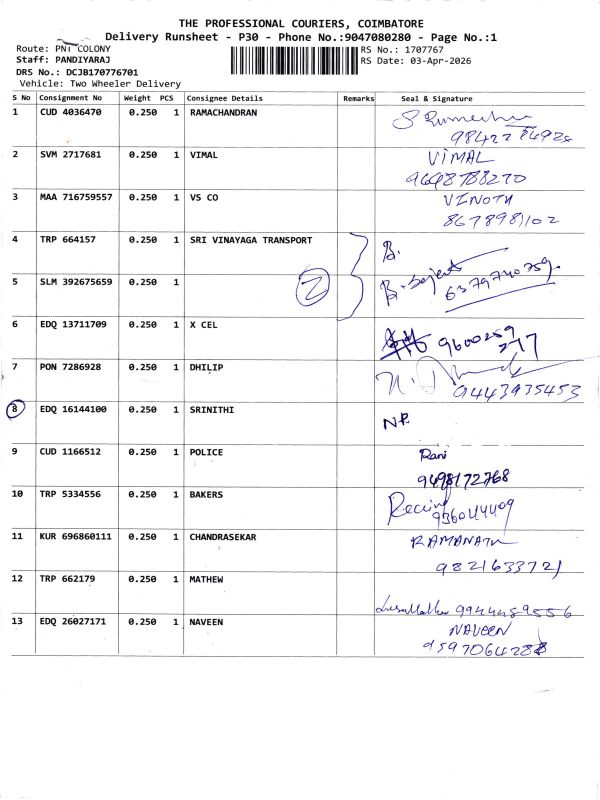 THE PROFESSIONAL COURIERS, COIMBATORE
Delivery Runsheet - P30 - Phone No.:9047080280 - Page No.:1
Route: PNT COLONY
RS No.: 1707767
Staff: PANDIYARAJ
RS Date: 03-Apr-2026
DRS No.: DCJB170776701
Vehicle: Two Wheeler Delivery
S No Consignment No Weight PCS Consignee Details Remarks Seal & Signature
1 CUD 4036470 0.250 1 RAMACHANDRAN
2 SVM 2717681 0.250 1 VIMAL VIMAL
9698788270
3 MAA 716759557 0.250 1 VS CO VINOTH
8678981102
4 TRP 664157 0.250 1 SRI VINAYAGA TRANSPORT B.
5 SLM 392675659 0.250 1 2 B.
6379740759
6 EDQ 13711709 0.250 1 X CEL 9600259
277
7 PON 7286928 0.250 1 DHILIP N.
9443935453
8 EDQ 16144100 0.250 1 SRINITHI NR
9 CUD 1166512 0.250 1 POLICE Rani
9498172768
10 TRP 5334556 0.250 1 BAKERS
936044409
11 KUR 696860111 0.250 1 CHANDRASEKAR RAMANATH
9821633721
12 TRP 662179 0.250 1 MATHEW
9944489556
13 EDQ 26027171 0.250 1 NAVEEN NAVEEN
9597064288